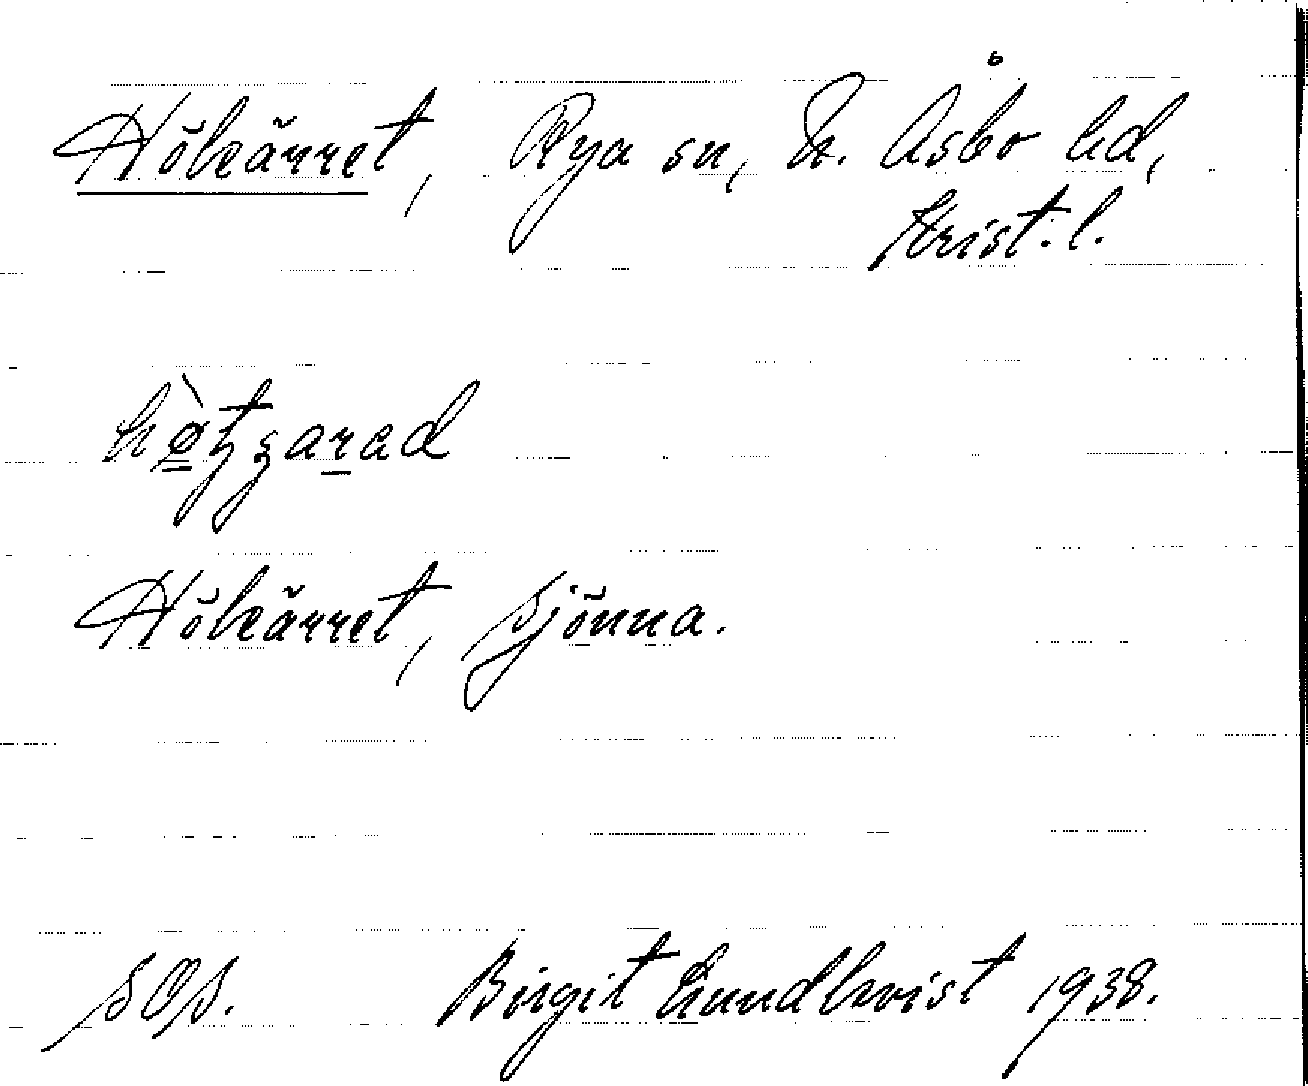 Hökärret, Rya sn, N. Åsbo hd,
Krist. l.
Hökärret, Sjönna.
SOS. Birgit Lundkvist 1938.